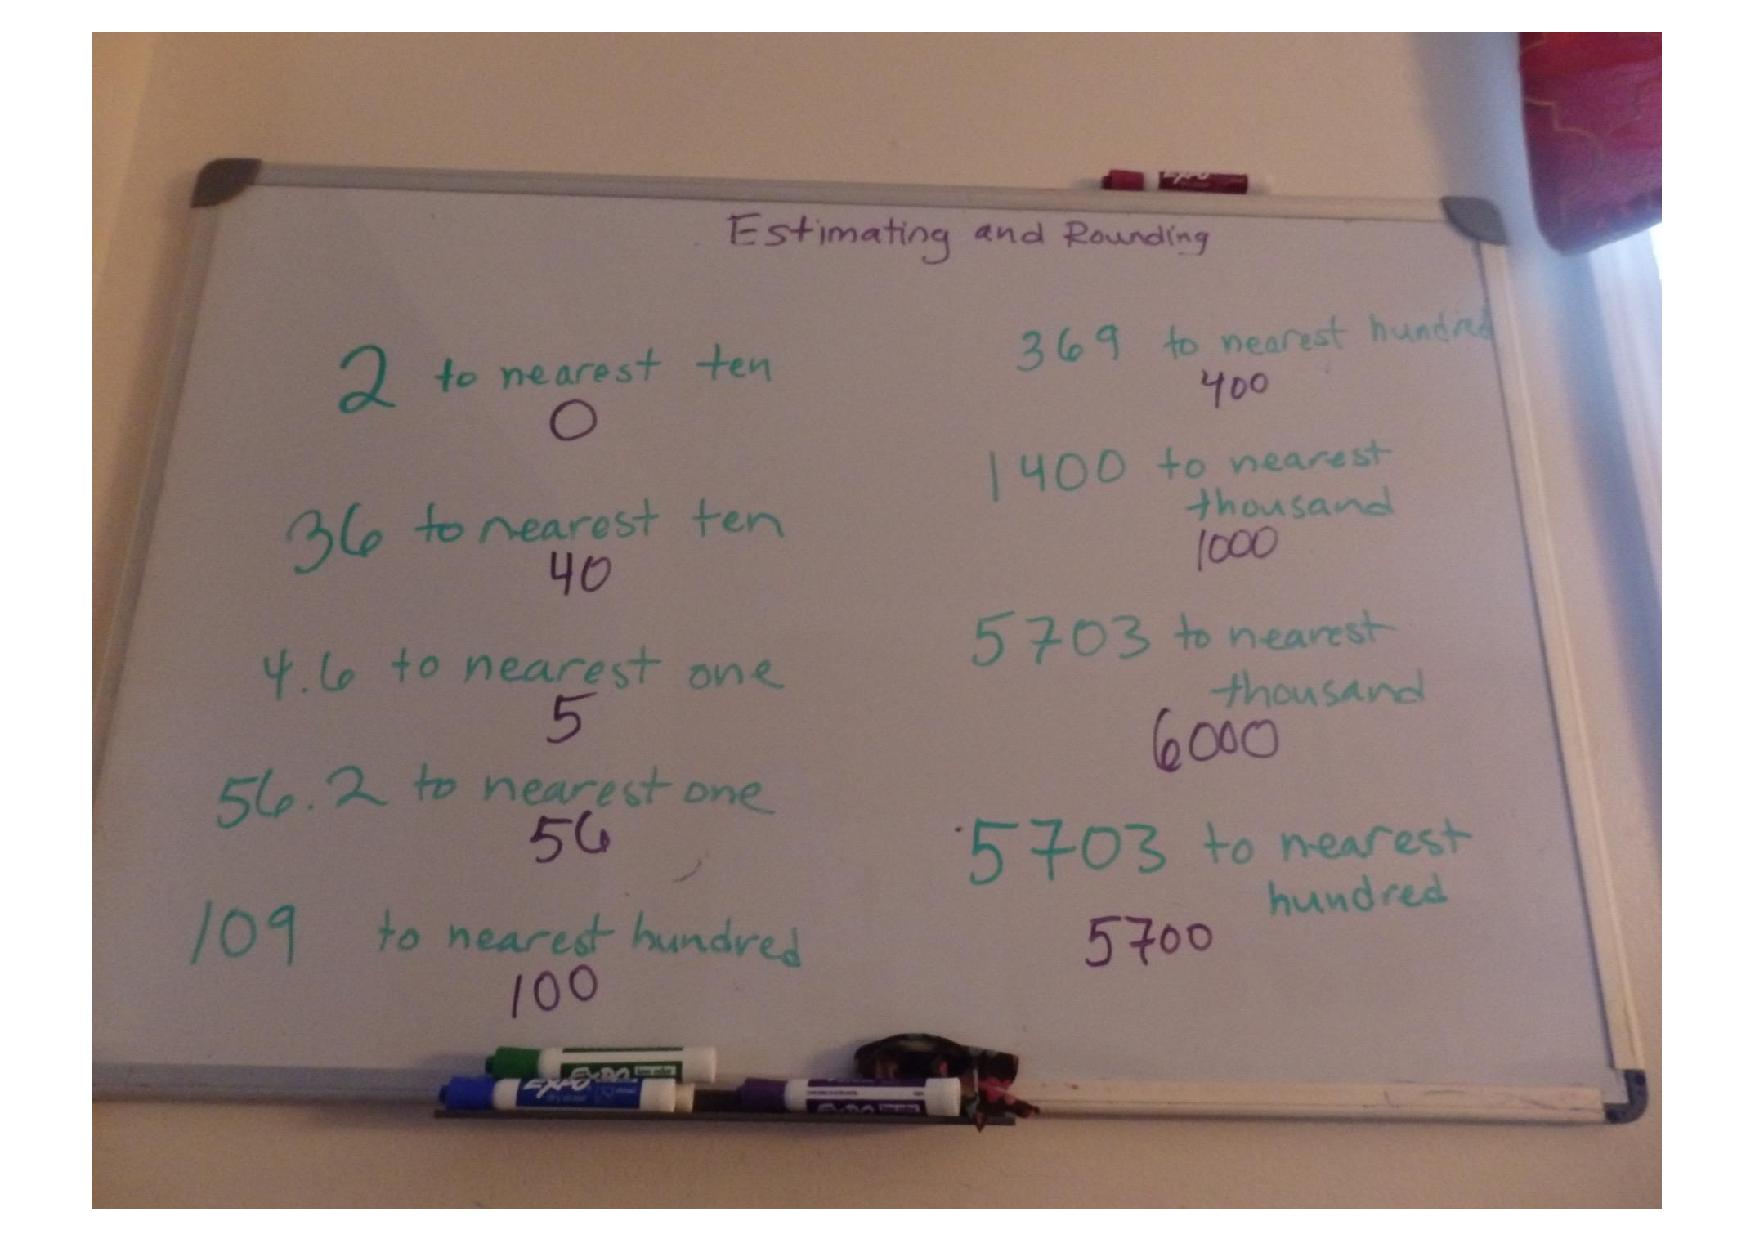 Estimating and Rounding
2 to nearest ten
0
36 to nearest ten
40
4.6 to nearest one
5
56.2 to nearest one
56
109 to nearest hundred
100
369 to nearest hundred
400
1400 to nearest
thousand
1000
5703 to nearest
thousand
6000
5703 to nearest
hundred
5700
EXPO
EXPO
EXPO
EXPO